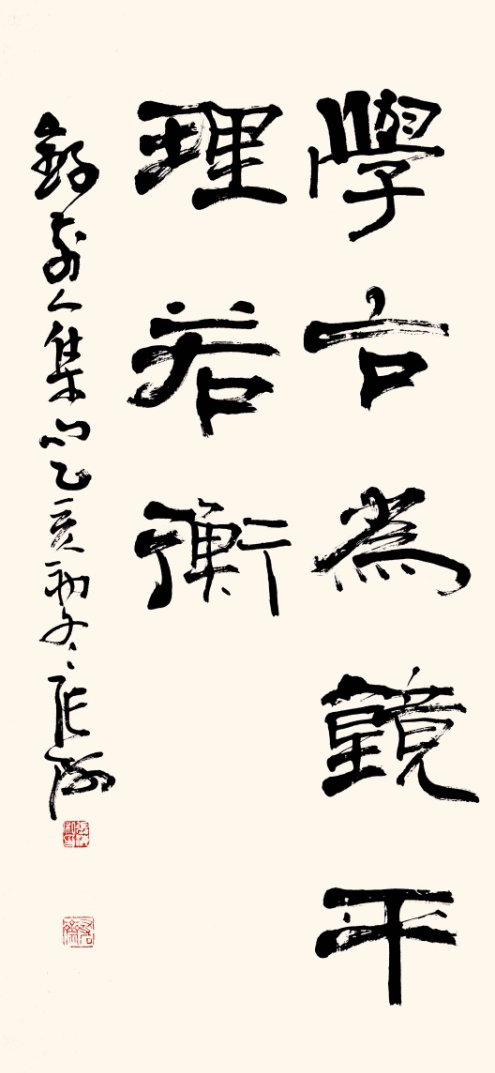 學古為鏡平
理若衡
錄前人集句乙亥初冬張海